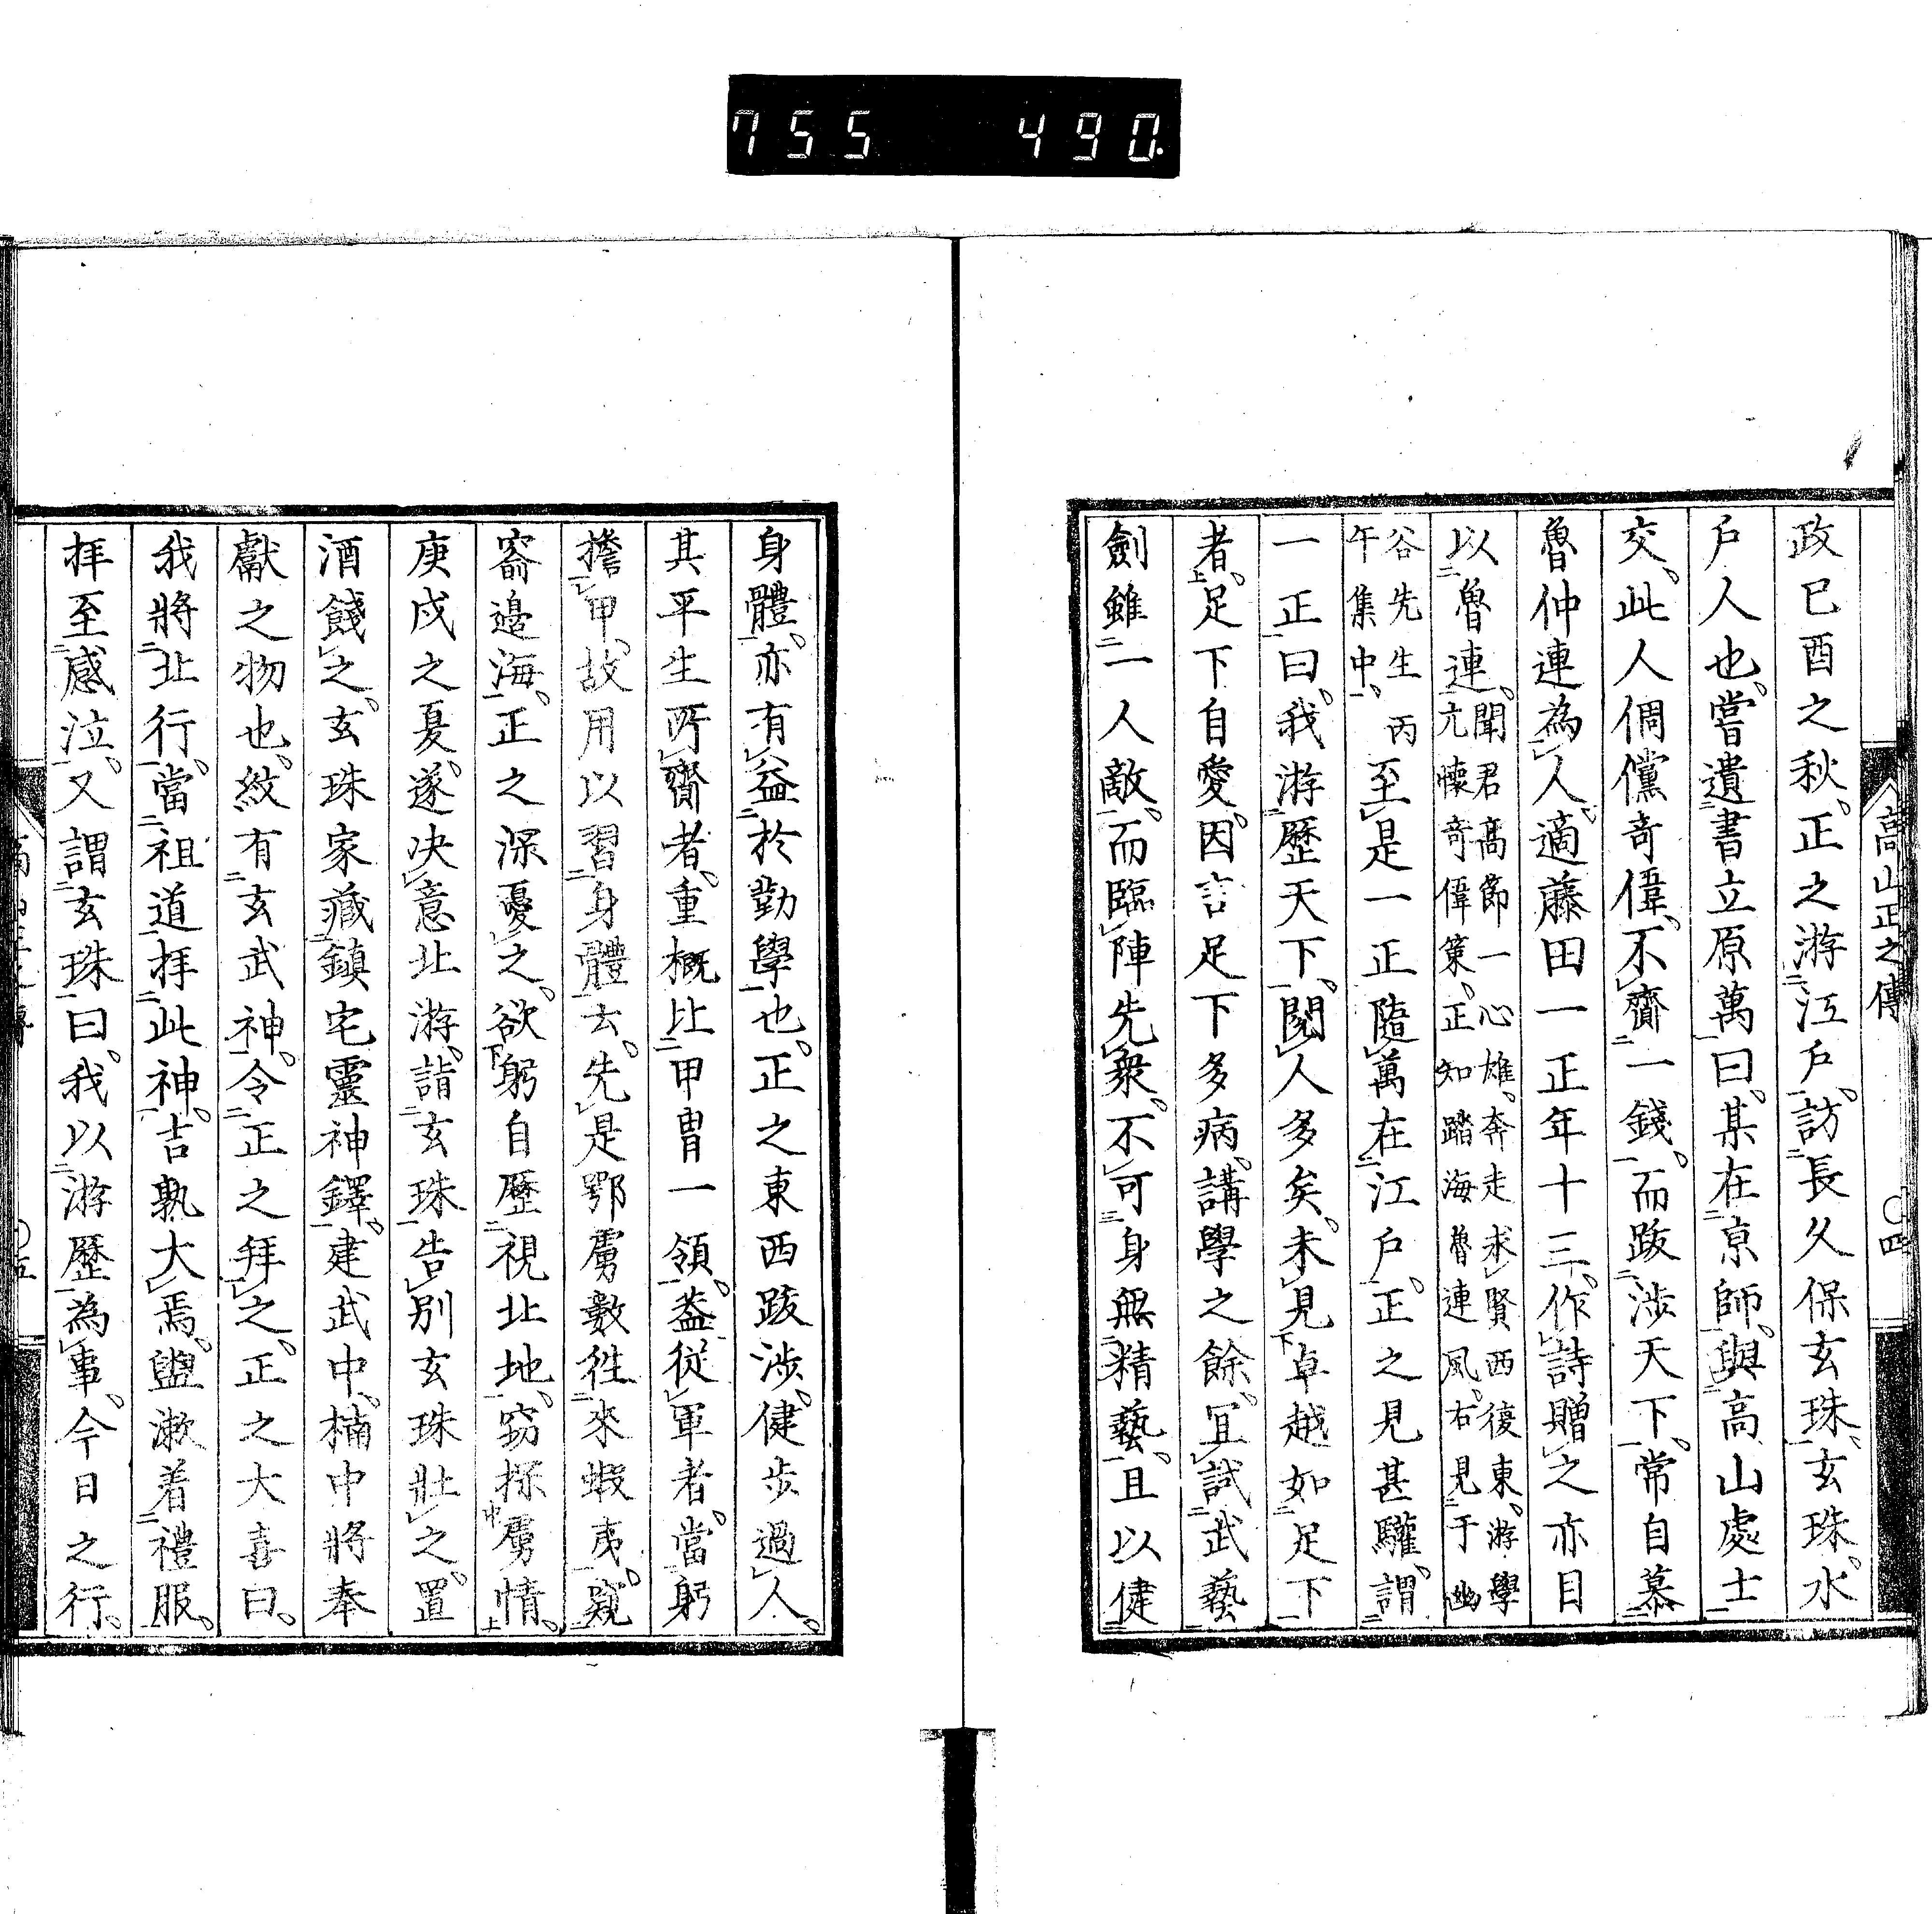 755 490.
高山正之傳 〇四
政己酉之秋。正之游江戶。訪長久保玄珠。玄珠。水
戶人也。嘗遺書立原萬曰。某在京師。與高山處士
交。此人倜儻奇偉。不齎一錢。而跋涉天下。常自慕
魯仲連為人。適藤田一正年十三。作詩贈之亦目
以魯連。聞君高節一心雄。奔走求賢西復東。游學
亢懷奇偉策。正知踏海魯連風。右見于幽
谷先生丙
午集中。至是一正隨萬在江戶。正之見甚驩。謂
一正曰。我游歷天下。閱人多矣。未見卓越如足下
者。足下自愛。因言足下多病。講學之餘。宜試武藝
劍雖一人敵。而臨陣先衆。不可身無精藝。且以健
身體。亦有益於勤學也。正之東西跋涉。健步過人。
其平生所齎者。重概比甲冑一領。葢從軍者。當躬
擔甲。故用以習身體云。先是鄂虜數徃來蝦夷。窺
窬邉海。正之深憂之。欲躬自歷視北地。窃探虜情。
庚戌之夏。遂决意北游。詣玄珠告別玄珠壯之。置
酒餞之。玄珠家藏鎮宅靈神鐸。建武中。楠中將奉
獻之物也。紋有玄武神。令正之拜之。正之大喜曰。
我將北行。當祖道拝此神。吉孰大焉。盥漱着禮服。
拝至感泣。又謂玄珠曰。我以游歷為事。今日之行。